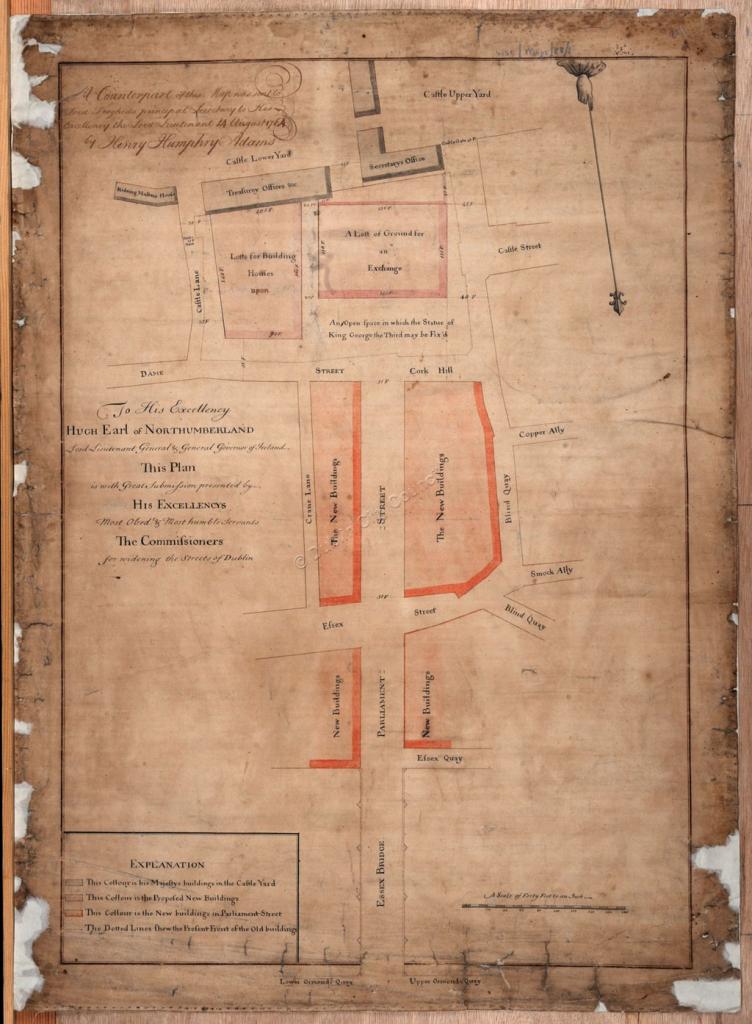 A Counterpart of this Map was sent to
Lord Principal Secretary to His
Excellency the Lord Lieutenant 14 August 1764
By Henry Humphry Adams
Castle Upper Yard
Castle Lower Yard
Secretarys Office
Treasury Offices &c
Rideing Masters House
Lotts for Building
Houses
upon
A Lott of Ground for
an
Exchange
Castle Street
Castle Lane
An Open Space in which the Statue of
King George the Third may be Fix'd
Dame
Street
Cork Hill
To His Excellency
Hugh Earl of Northumberland
Lord Lieutenant General & General Governor of Ireland
This Plan
is with Great Submission presented by
His Excellencys
Most Obed.t & Most humble Servants
The Commissioners
for widening the Streets of Dublin
Crane Lane
The New Buildings
Street
The New Buildings
Blind Quay
Copper Ally
Smock Ally
Blind Quay
© Dublin City Council
Essex
Street
New Buildings
Parliament
New Buildings
Essex Quay
Essex Bridge
Explanation
This Collour is his Majestys buildings in the Castle Yard
This Collour is the Proposed New Buildings
This Collour is the New buildings in Parliament Street
The Dotted Lines shew the Present Front of the Old buildings
A Scale of Forty Feet to an Inch
Lower Ormonde Quay
Upper Ormonde Quay